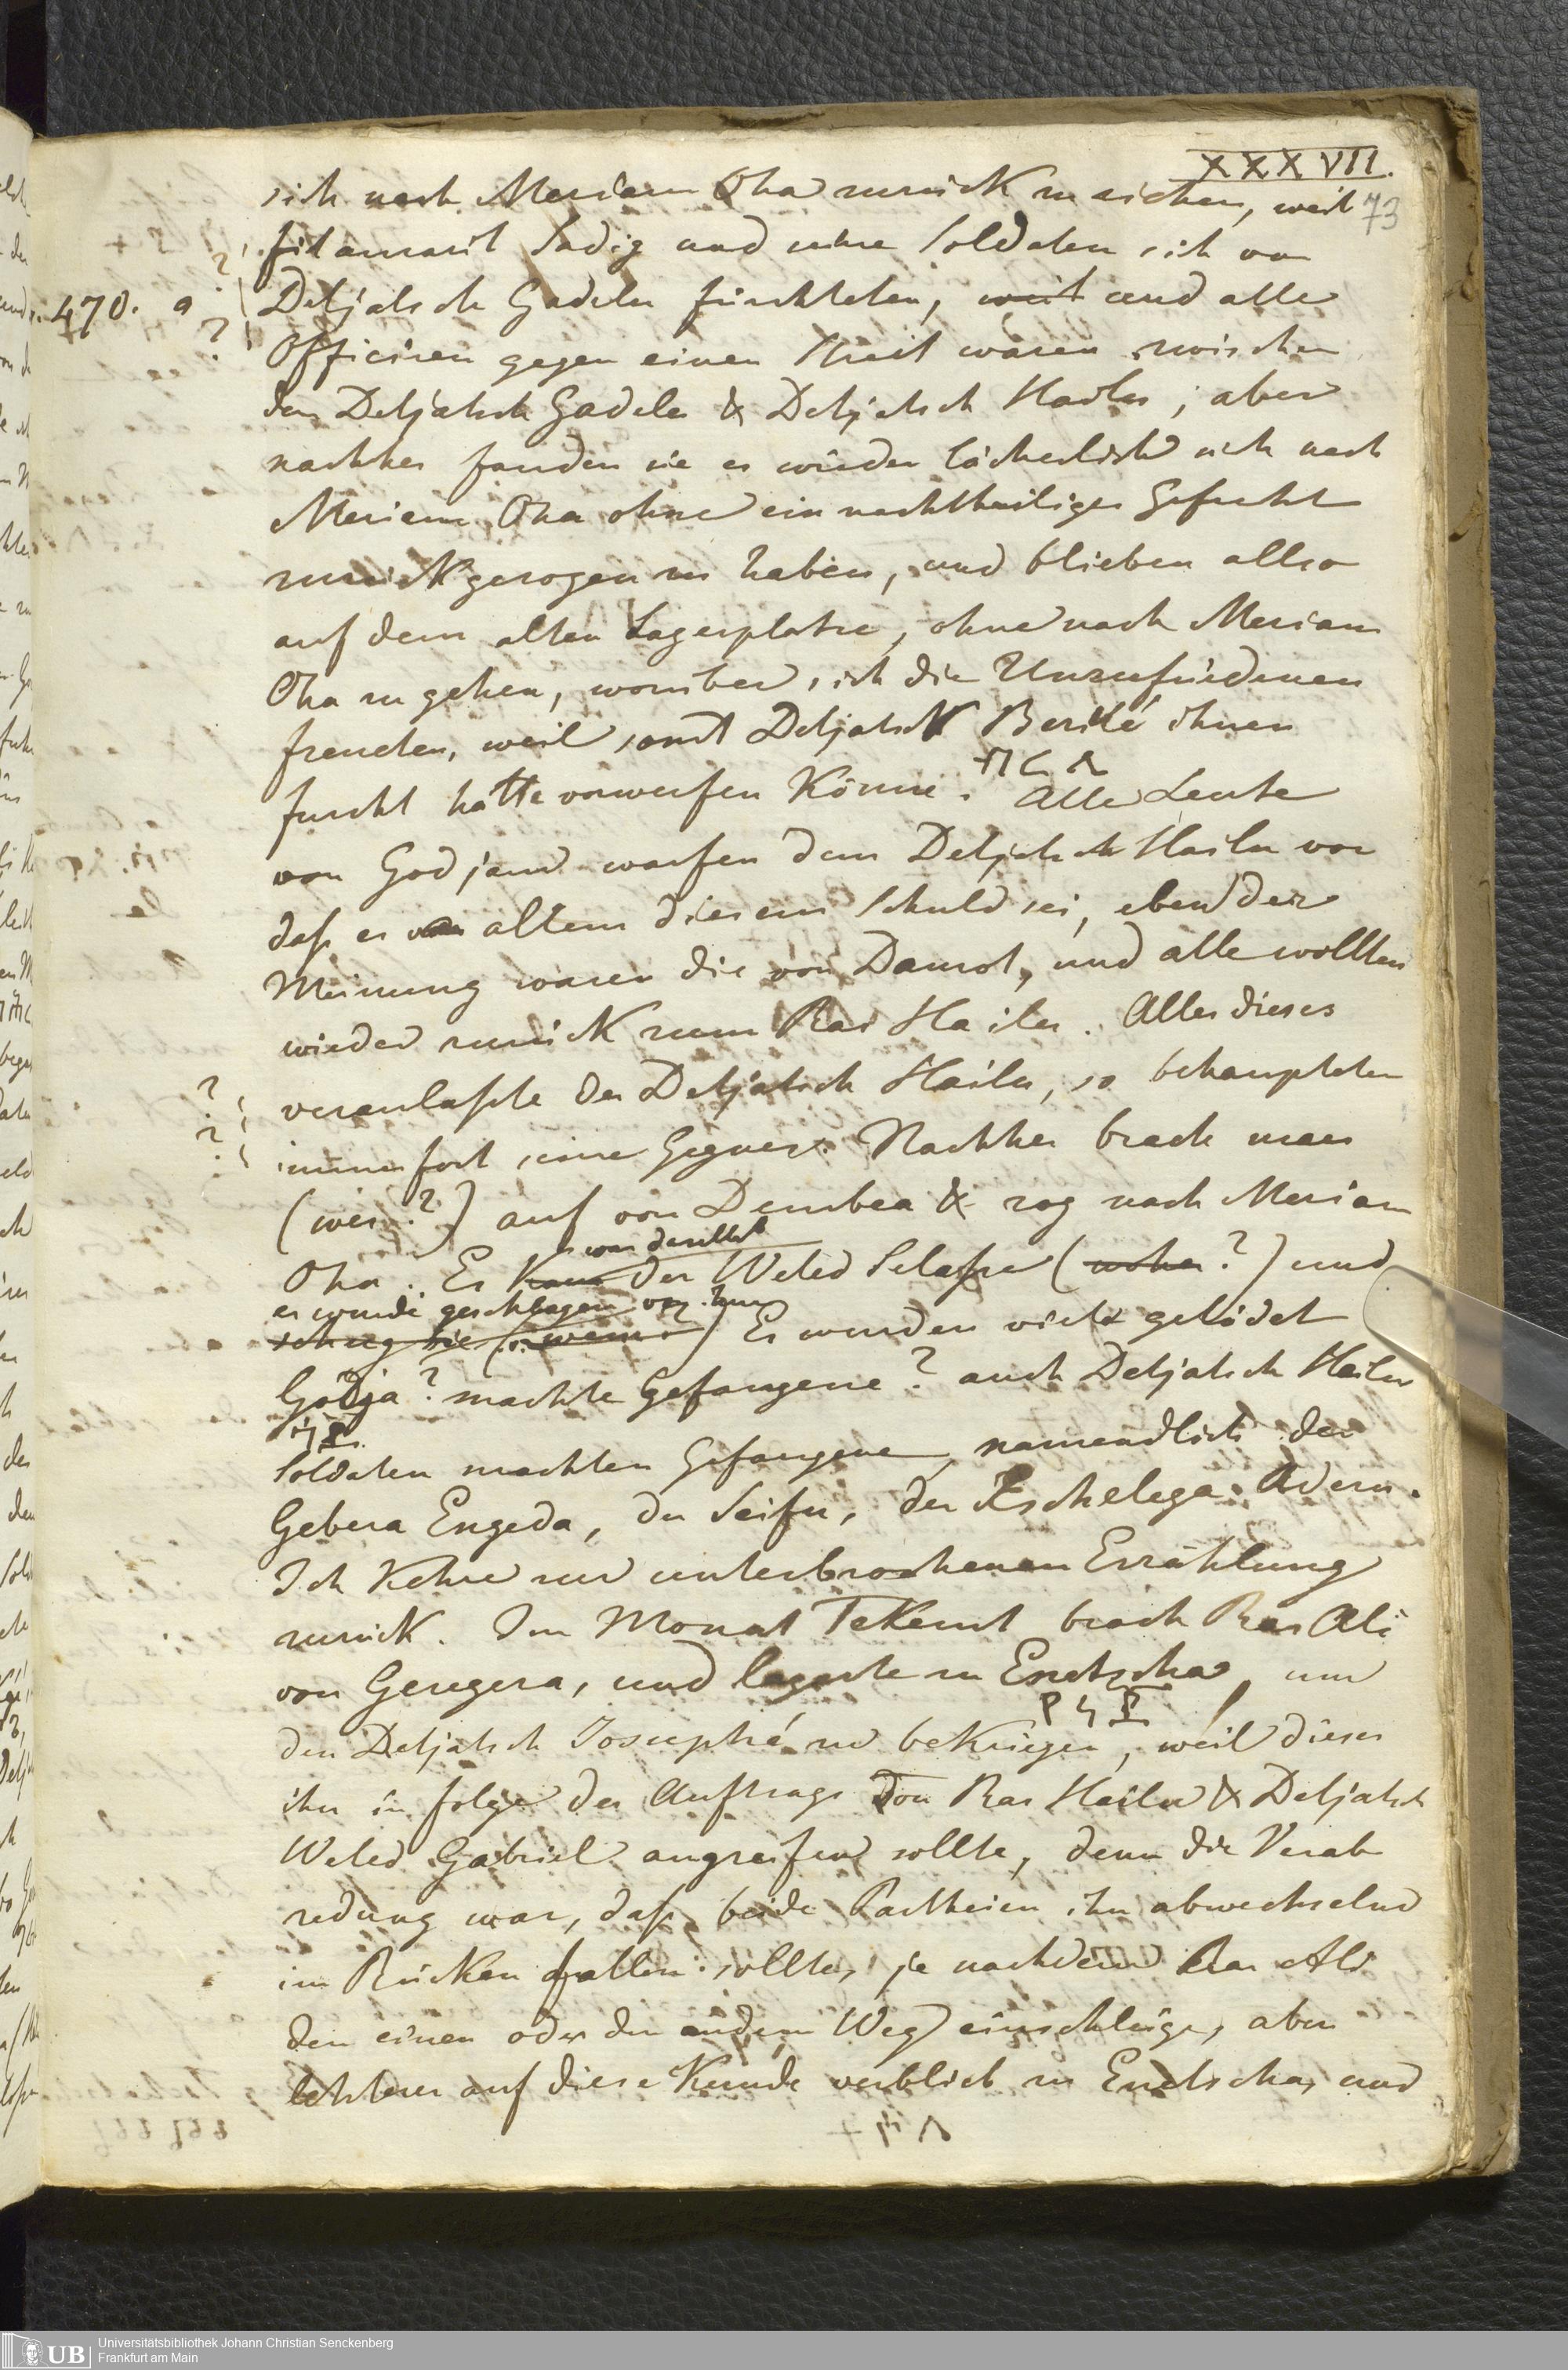 XXXVII.
73
sich nach Meriam Oha zurück zu ziehen, weil
fitaurarit Sadig und seine Soldaten sich vor
470. a
Detjatsch Gadelu fürchteten, weil und alle
Officiren gegen einen Streit waren zwischen
den Detjatsch Gadelu & Detjatsch Hailu; aber
nachher fanden sie es wieder lächerlich sich nach
Meriam Oha ohne ein nachtheiliges Gefecht
zurückgezogen zu haben, und blieben allso
auf dem alten Lagerplatze, ohne nach Meriam
Oha zu gehen, worüber sich die Unzufriedenen
freuten, weil sonst Detjatsch Berilé ihnen
furcht hätte vorwerfen Könne. Alle Leute
von Godjam warfen dem Detjatsch Hailu vor
daß er an allem diesem Schuld sei, eben der
Meinung waren die von Damot, und alle wollten
wieder zurück zum Ras Hailu. Alles dieses
? veranlaßte der Detjatsch Hailu, so behaupteten
? immerfort seine Gegner. Nachher brach man
(wer?) auf von Dembea & zog nach Meriam
es war daselbst
Oha. Er Kam der Weled Selasse (woher?) und
er wurde geschlagen von ihm
schlug sie (wem?) Es wurden viele getödet
Godja? machte Gefangene? auch Detjatsch Hailu
Soldaten machten Gefangene, namendlich der
Gebera Engeda, der Seifu, der Aschelega Aderu.
Ich Kehre zur unterbrochenen Erzählung
zurück. Im Monat Tekemt brach Ras Ali
von Geregera, und lagerte zu Enetscha, um
den Detjatsch Joseuphé zu beKriegen, weil dieser
ihn in folge des Auftrags von Ras Hailu & Detjatsch
Weled Gabriel angreifen sollte, denn die Verab
redung war, daß beide Partheien ihn abwechselnd
im Rücken fallen sollten, je nachdem Ras Ali
den einen oder den andern Weg einschlüge, aber
letzterer auf diese Kunde verblieb zu Enetscha, und
UB
Universitätsbibliothek Johann Christian Senckenberg
Frankfurt am Main